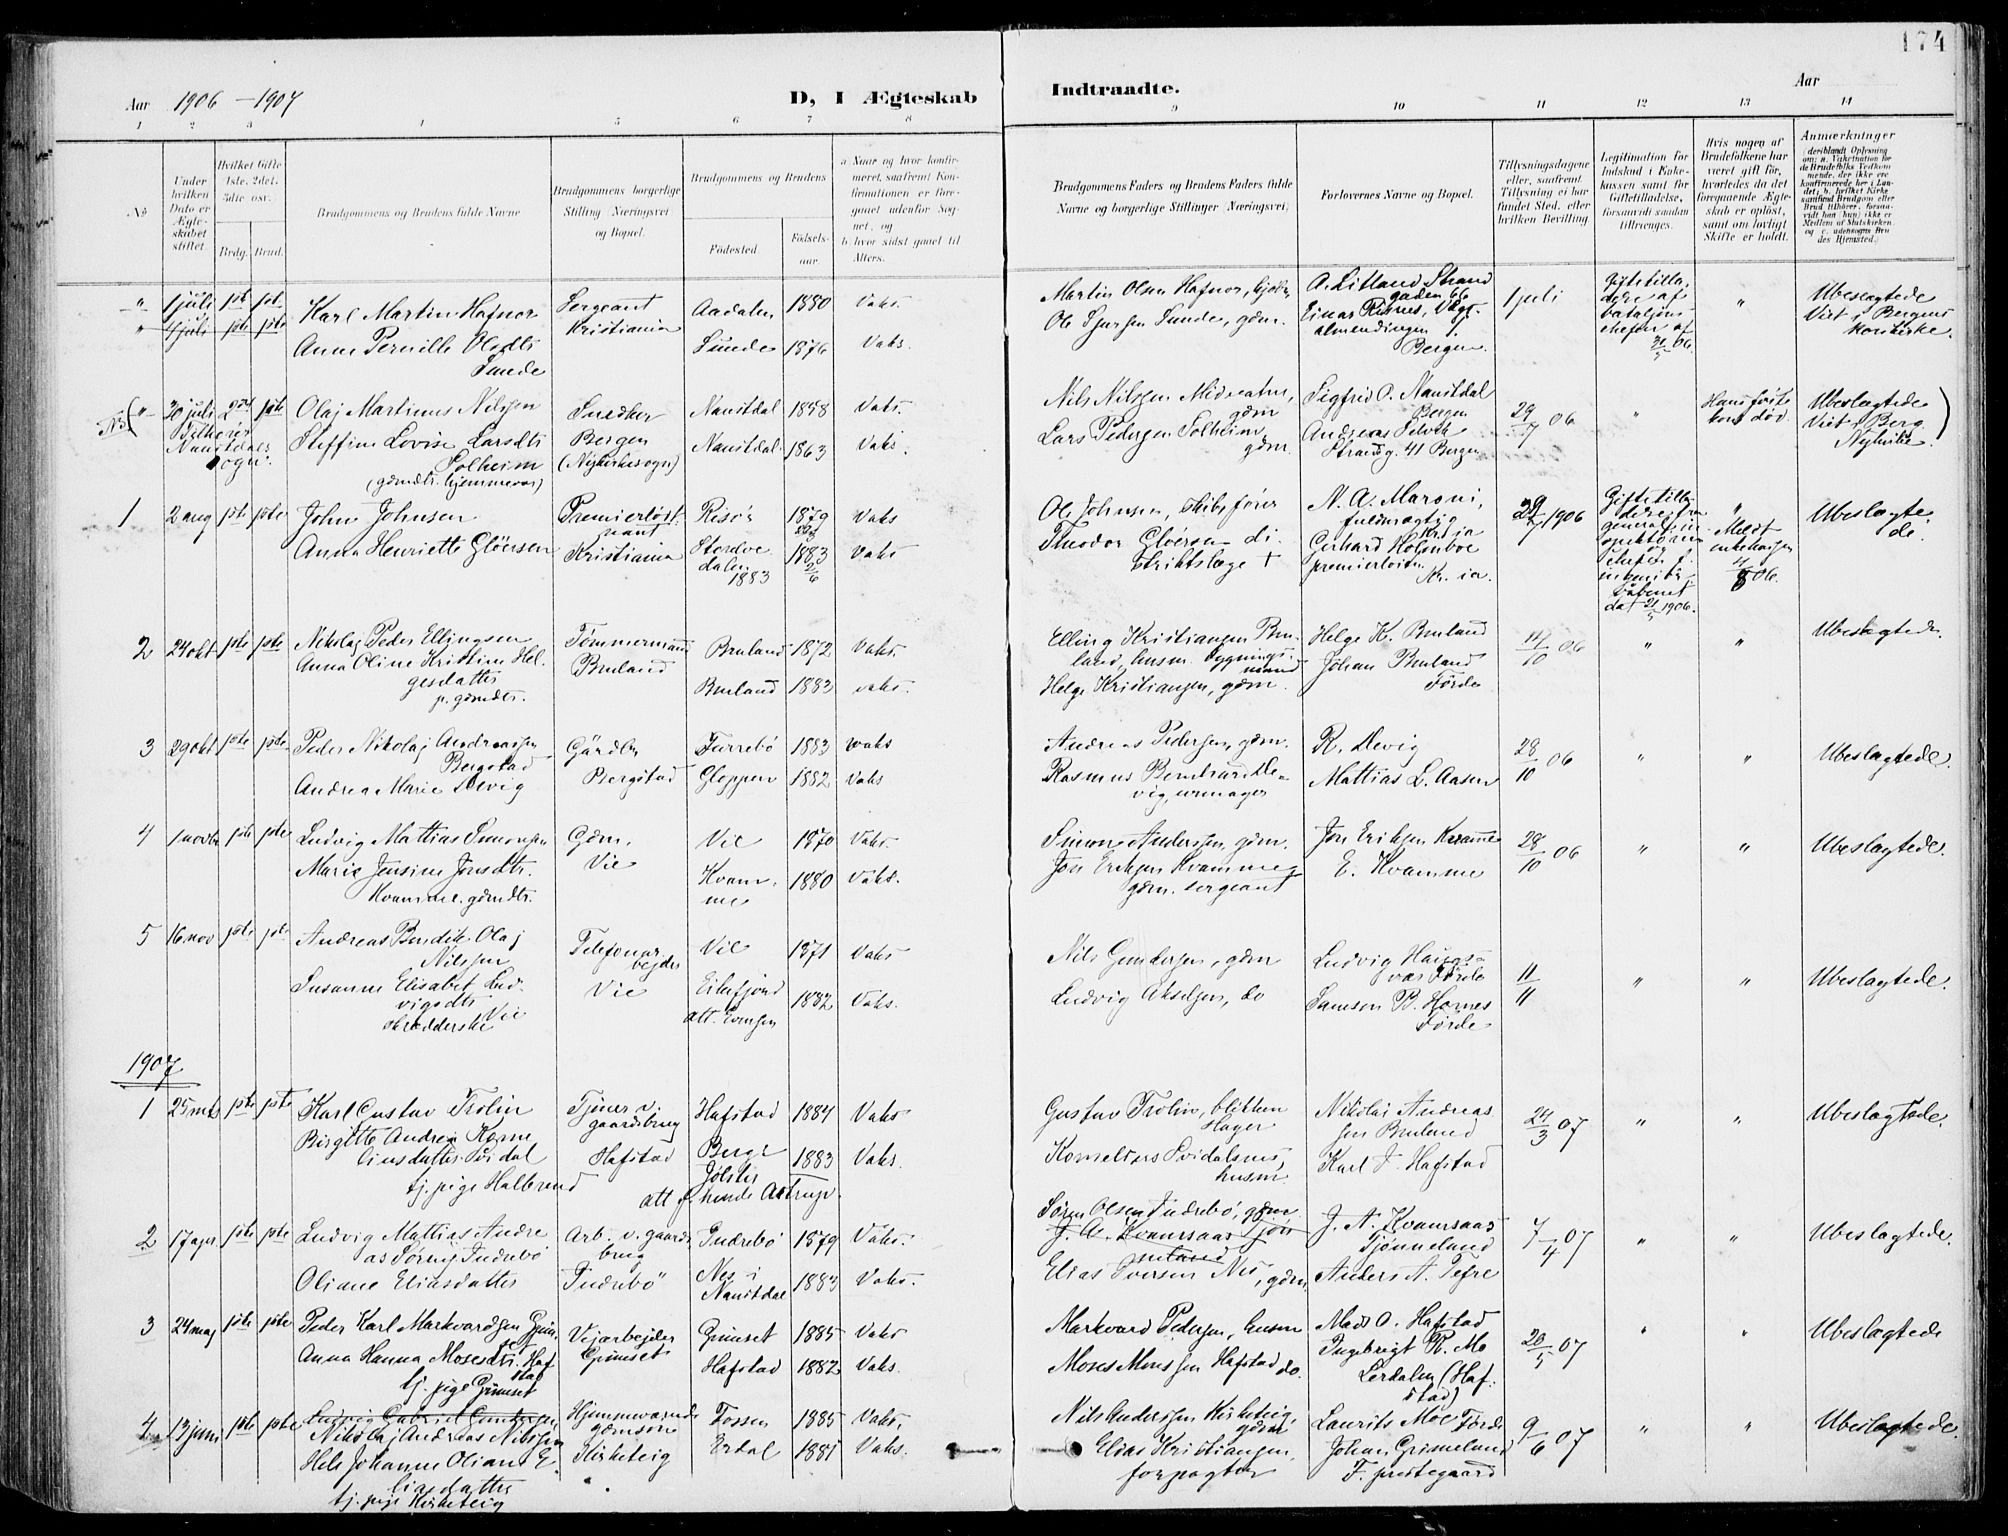 174
Aar 1906 – 1907
D, I Ægteskab Indtraadte.
Aar
1 2 3 4 5 6 7 8 9 10 11 12 13 14
No
Under hvilken Dato er Ægteskabet stiftet.
Hvilket Gifte 1ste, 2det, 3die osv.
Brdg. Brud.
Brudgommens og Brudens fulde Navne
Brudgommens borgerlige Stilling Næringsvei og Bopæl.
Brudgommens og Brudens
Fødested
Fødselsaar.
a. Naar og hvor konfirmeret, saafremt Konfirmationen er foregaaet udenfor Sognet, og
b. hvor sidst gaaet til Alters.
Brudgommens Faders og Brudens Faders fulde Navne og borgerlige Stillinger (Næringsvei)
Forlovernes Navne og Bopæl.
Tillysningsdagene eller, saafremt Tillysning ei har fundet Sted, efter hvilken Bevilling.
Legitimation for Indskud i Enkekassen samt for Giftetilladelse, forsaavidt saadan tiltrænges.
Hvis nogen af Brudefolkene har været gift før, hvorledes da det foregaaende Ægteskab er opløst, samt om lovligt Skifte er holdt.
Anmærkninger
" 1 juli 1ste 1ste
" 4 juli 1ste 1ste
Karl Martin Hafnor
Anne Pernille Olsdtr
Sunde
Sergeant
Kristiania
Aadalen 1880 Vaks.
Sunde 1876 Vaks.
Martin Olsen Hafnor,
Ole Sjursen Sunde, gdm.
A. Litland Strand
gaden 66
Einar Risnes,
almendingen 7.
Bergen.
1 juli
Giftetilla
delse af
bataljons
chefen af
"
Ubeslægtede
Viet i Bergens
korskirke.
" 30 juli 2det 1ste
Naustdals
sogn.
Olaj Martinus Nilssen
Steffine Lovise Larsdtr
Solheim
(gdmdtr. hjemmevær)
Snedker
Bergen
(Nykirkesogn)
Naustdal 1858 Vaks.
Naustdal 1863 Vaks.
Nils Nilssen
gdm
Lars Pedersen Solheim
gdm.
Sigfrid O. Naustdal
Bergen
Andreas
Strandg. 41 Bergen
29/7 06
"
Hans første
kone død.
Ubeslægtede
Viet i Berg.
Nykirke.
1 2 aug 1ste 1ste
John Johnsen
Anna Henriette Gløersen
Premierløit-
nant
Kristiania
Risør 1879 Vaks
Stordve
dalen
1883
1883 Vaks
Ole Johnsen, skibsfører
Theodor Gloersen di-
striktslæge +
N. A. Maroni,
fuldmægtig
Kr.ia
Gerhard Holmboe
premierløitn.
Kr. ia.
29/7 1906
Giftetilla
delse fra
generalin
spektøren
og
chefen f.
ingeniør
våbenet
dat 1906.
"
Meldt
enkekassen
06.
Ubeslægte
de.
2 24 okt 1ste 1ste
Nikolaj Peder Ellingsen
Anna Oline Kristine Hel-
gesdatter
p. gdmdtr.
Tømmermand
Bruland
Bruland 1872 Vaks.
Bruland 1883 vaks.
Elling Kristiansen Bru-
land, husm. bygnings-
mand
Helge Kristiansen, gdm.
Helge K. Bruland
Johan Bruland
Førde
14/10 06
" "
Ubeslægtede.
3 29 okt 1ste 1ste
Peder Nikolaj Andreassen
Bergstad
Andrea Marie Devig
Gårdbr
Bergstad
Furrebø 1883 vaks
Gloppen 1882 Vaks
Andreas Pedersen, gdm.
Rasmus Bernhard De-
vig, urmager
R. Devig
Mattias L. Aasen
28/10 06
" "
Ubeslægtede.
4 1 novbr 1ste 1ste
Ludvig Mattias Simonsen
Marie Jensine Jonsdtr.
Kvamme. gdmdtr.
Gdm.
Vie
Vie 1870 Vaks.
Kvam-
me
1880 Vaks.
Simon Andersen, gdm.
Jon Eriksen Kvamme
gdm. sergeant
Jon Eriksen Kvamme
E. Kvamme
28/10 06
" "
Ubeslægtede.
5 16 nov 1ste 1ste
Andreas Bendik Olaj
Nilssen
Susanne Elisabet Lud-
vigsdtr
Vie
skrædderske
Telefonar
bejder
Vie
Vie 1871 Vaks
Eikefjord
att. Evensen
1882 Vaks.
Nils Gundersen, gdm
Ludvig Akselsen, do
Ludvig Haugs-
vær Førde
Samson B. Hornes
Førde
11/11
" "
Ubeslægtede.
1907
1 25 mts 1ste 1ste
Karl Gustav Trolin
Birgitte Andrea Korne
liusdatter Svidal
tj. pige Halbrend
Tjener v.
gaardsbrug
Hafstad
Hafstad 1884 Vaks
Berge
Jølster
1883 Vaks.
att f. hende Astrup.
Gustav Trolin, blikken
slager
Kornelius Svidalsnes,
husm
Nikolai Andreas
sen Bruland
Karl J. Hafstad
24/3 07
" "
Ubeslægtede.
2 17 apr 1ste 1ste
Ludvig Mattias Andre
as Sørensen Indrebø
Oliane Eliasdatter
Arb. v. gaards
brug
Indrebø
Indrebø 1879 Vaks.
Nes i
Naustdal
1883 Vaks.
Søren Olsen Indrebø, gdm.
J. A. Kvamsaas Tjøn
neland
Elias Iversen Nes, gdm
J. A. Kvamsaas
Tjønneland
Anders A. Tefre
7/4 07
" "
Ubeslægtede.
3 24 maj 1ste 1ste
Peder Karl Markvardsen Grim-
set
Anna Hanna Mosesdtr. Haf
stad
tj. pige Grimset
Vejarbejder
Grimset
Grimset 1885 Vaks
Hafstad 1882 Vaks.
Markvard Pedersen, husm
Moses Monssen Hafstad do.
Mads O. Hafstad
Ingebrigt R. Mo
Lerdalen (Haf-
stad)
20/5 07
" "
Ubeslægtede
4 13 juni 1ste 1ste
Ludvig Gabriel Gundersen
Nikolaj Andreas Nilssen
Hels Johanne Oliane E-
liasdatter
tj. pige Kirketeig
Hjemmeværende
gdmsøn
Kirketeig
Fossen 1885 Vaks.
Erdal 1881 Vaks.
Nils Anderssen Kirketeig,
gdm
Elias Kristiansen,
forpagter
Laurits Moe Førde
Johan Grimeland
F. prestegaard
9/6 07
" "
Ubeslægtede.